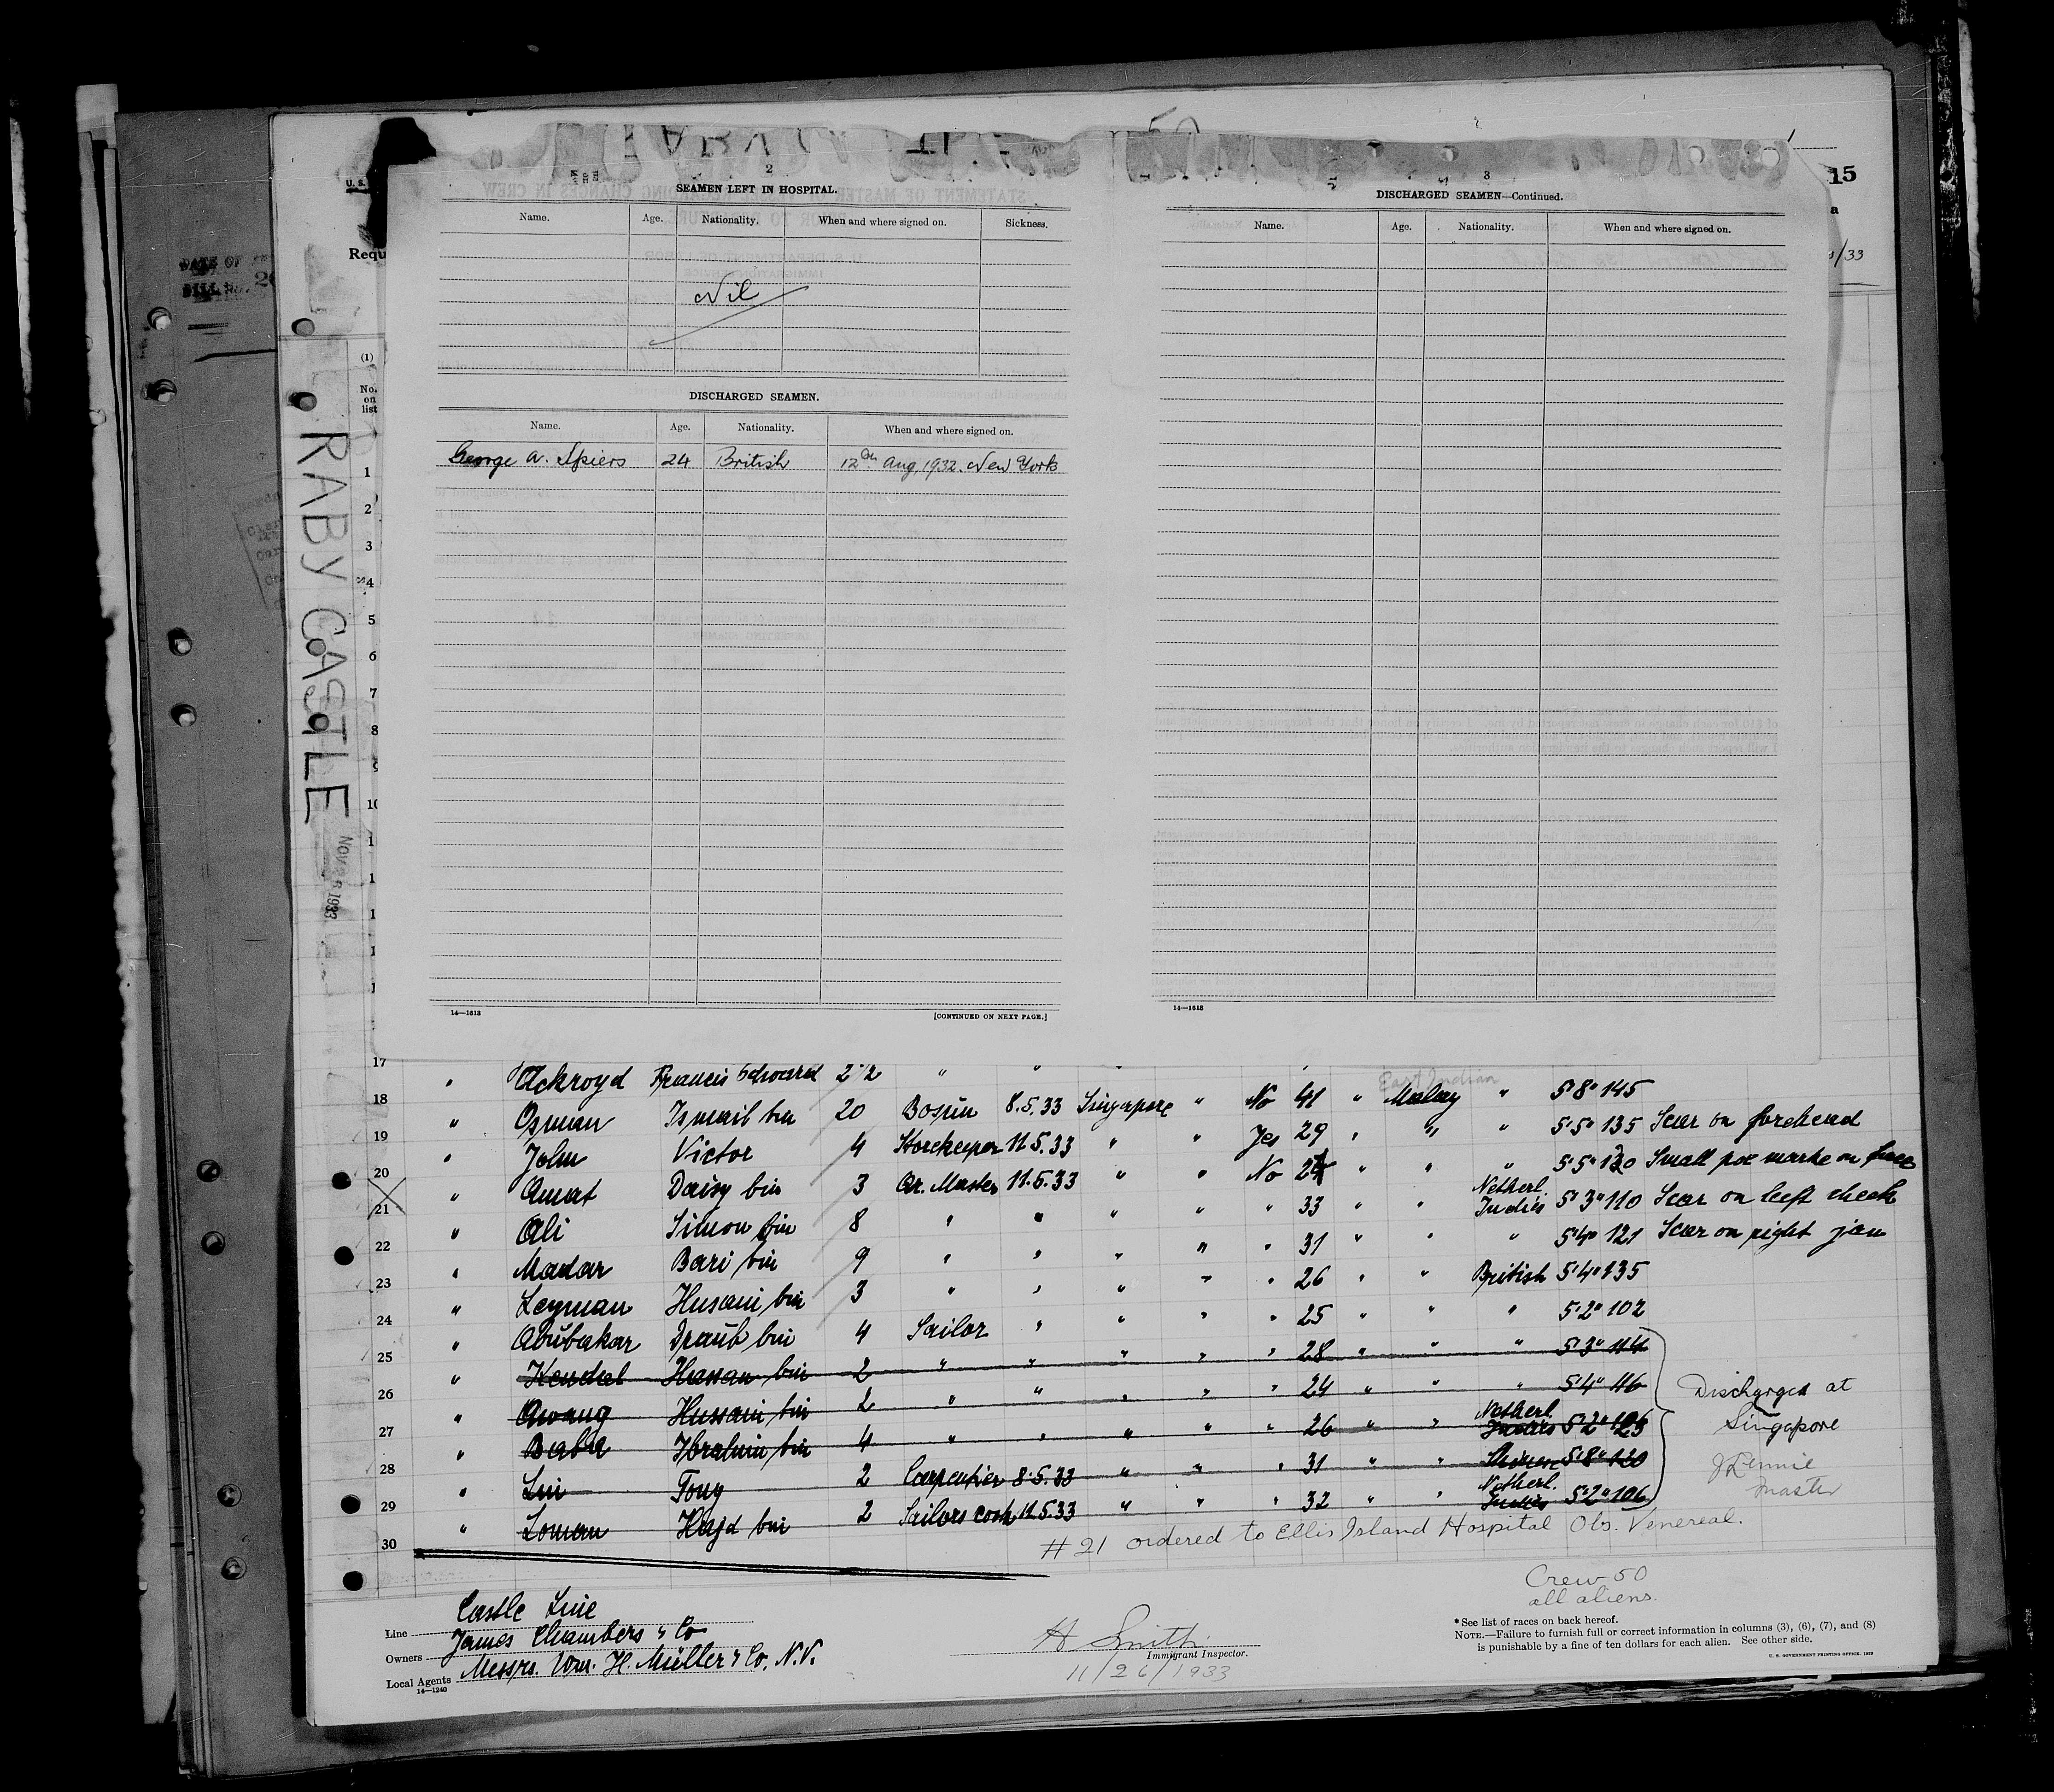 15
/33
U. S.
Requ
DATE OF
BILL
RABY CASTLE
NOV 26 1933
2
SEAMEN LEFT IN HOSPITAL.
Name. Age. Nationality. When and where signed on. Sickness.
Nil
DISCHARGED SEAMEN.
Name. Age. Nationality. When and where signed on.
George A. Spiers 24 British 12th Aug, 1932. New York
14—1613 [CONTINUED ON NEXT PAGE.]
3
DISCHARGED SEAMEN—Continued.
Name. Age. Nationality. When and where signed on.
14—1613
(1)
No.
on
list
1
2
3
4
5
6
7
8
17 " Ackroyd Francis Edward 2 1/2 " "
East Indian
18 " Osman Ismail bin 20 Bosun 8.5.33 Singapore " No 41 " Malay " 5'8" 145
19 " John Victor 4 Storekeeper 11.5.33 " " Yes 29 " " " 5'5" 135 Scar on forehead
20 " Amat Daisy bin 3 Qr. Master 11.5.33 " " No 24 " " " 5'5" 130 Small pox marks on face
21 " Ali Simon bin 8 " " " " " 33 " " Netherl. Indies 5'3" 110 Scar on left cheek
22 " Madar Bari bin 9 " " " " " 31 " " " 5'4" 121 Scar on right jaw
23 " Leyman Husain bin 3 " " " " " 26 " " British 5'4" 135
24 " Abubakar Draub bin 4 Sailor " " " " 25 " " " 5'2" 102
25 " Kendal Hassan bin 2 " " " " " 28 " " " 5'3" 114
26 " Awang Hussain bin 2 " " " " " 24 " " " 5'4" 116
27 " Baba Ibrahim bin 4 " " " " " 26 " " Netherl. Indies 5'2" 125
28 " Lui Tong 2 Carpenter 8.5.33 " " " 31 " " Chinese 5'8" 120
29 " Loman Hajd bin 2 Sailors cook 11.5.33 " " " 32 " " Netherl. Indies 5'2" 106
30
Discharged at
Singapore
Master
#21 ordered to Ellis Island Hospital Obs. Venereal.
Crew 50
all aliens.
Line Castle Line
Owners James Chambers & Co
Local Agents Messrs. Wm. H. Müller & Co. N.V.
14—1240
H Smith
Immigrant Inspector.
11/26/1933
*See list of races on back hereof.
NOTE.—Failure to furnish full or correct information in columns (3), (6), (7), and (8)
is punishable by a fine of ten dollars for each alien. See other side.
U. S. GOVERNMENT PRINTING OFFICE